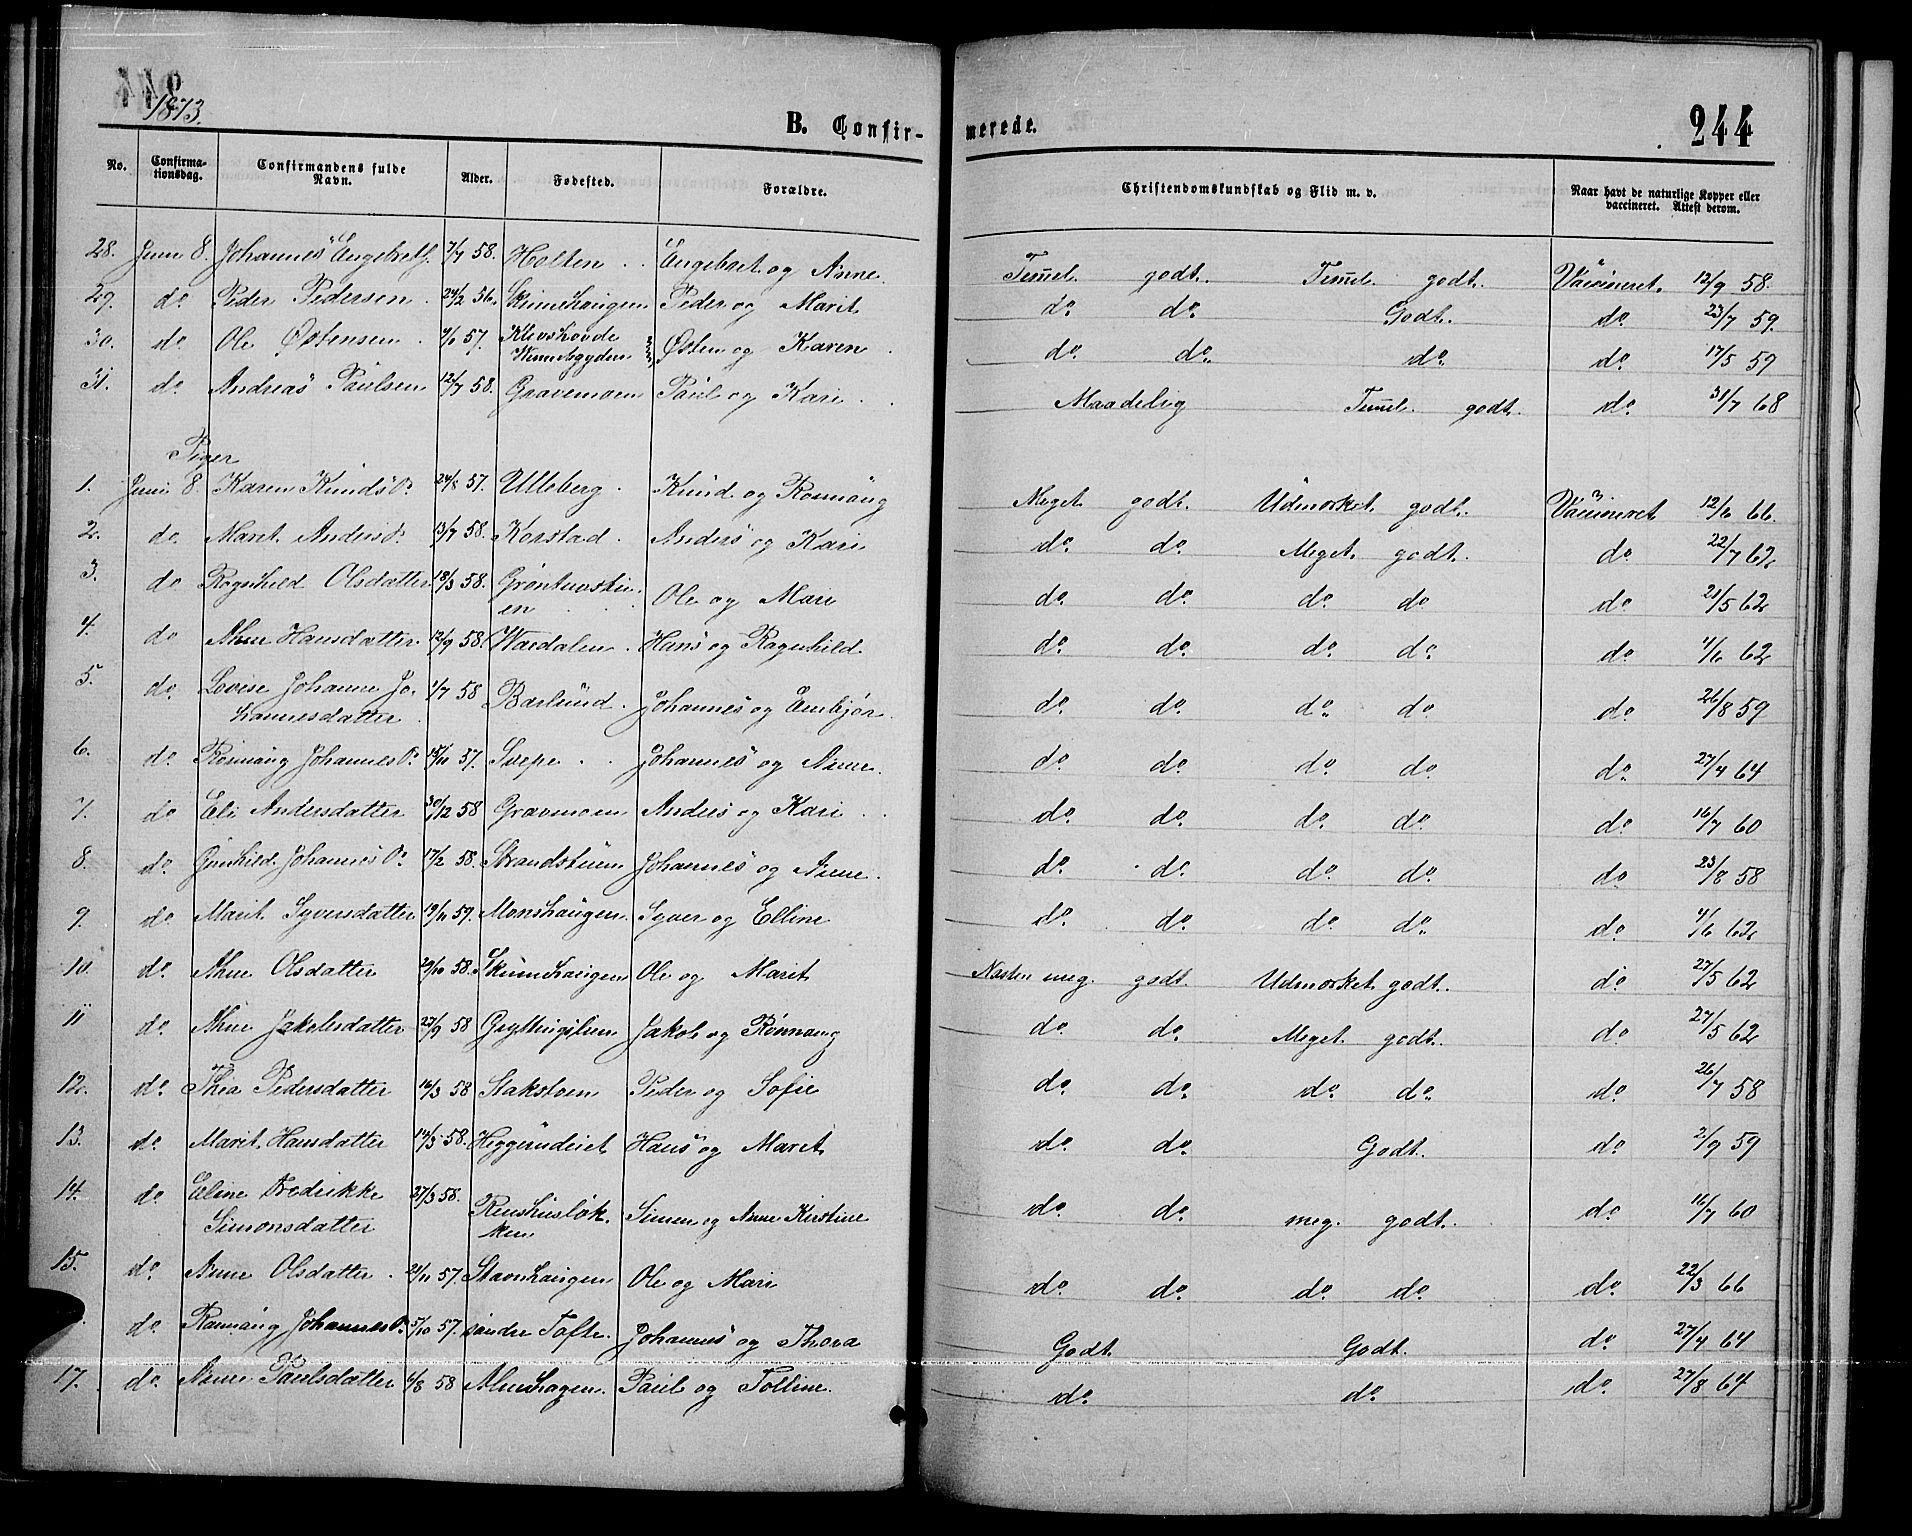 1873.
B. Confir- merede.
244
No. Confirma-tionsdag. Confirmandens fulde Navn. Alder. Fødested. Forældre. Christendomskundskab og Flid m. v. Naar havt de naturlige Kopper eller vaccineret. Attest derom.
28. Juni 8. Johannes Engebretf. 7/7 58. Holten Engebret og Anne Temel. godt. Temel. godt. Vaccineret. 12/9 58.
29. do. Peder Pedersen 24/2 56. Skimehaugen Peder og Marit do. do. Godt. do. 23/7 59.
30. do. Ole Østensen 57. Klevshovde Østen og Karen do. do. do. do. 17/5 59
31. do. Andreas Paulsen 12/7 58. Gravemoen Paul og Kari Maadelig Temel. godt. do. 31/7 68
Piger
1. Juni 8. Karen Knudsd. 24/8 57. Ulleberg Knud og Rønnaug Meget godt. Udmærket godt. Vaccineret 12/6 66.
2. do. Marit Andersd. 13/7 58. Korstad Anders og Kari do. do. Meget godt. do 22/7 62
3. do Ragnhild Olsdatter 18/3 58. Ole og Mari do. do. do. do do 21/5 62
4. do Anne Hansdatter 12/9 58. Wardalen Hans og Ragnhild do. do. do. do. do. 4/6 62
5. do. Lovise Johanne Jo-
hannesdatter 1/7 58 Barlund Johannes og Embjør do. do. do. do do. 26/8 59
6. do. Rønnaug Johannesd. 15/11 57. Svepe Johannes og Anne do. do. do. do. do. 27/4 64
7. do Eli Andersdatter 30/12 58 Gravmoen Anders og Kari do. do. do. do. do. 16/7 60
8. do. Gunhild Johannesd. 17/2 58. Strandstuen Johannes og Anne do. do. do. do. do 23/8 58
9. do. Marit Syversdatter 19/11 59. Monshaugen Syver og Elline do. do. do. do. do. 4/6 62
10. do. Anne Olsdatter 29/10 58. Skimehaugen Ole og Marit Næsten meg. godt Udmærket godt. do. 27/5 62
11 do. Anne Jakobsdatter 27/9 58 Jakob og Rønnaug do. do. Meget godt. do 27/5 62
12. do. Thea Pedersdatter 16/3 58 Stakstoen Peder og Sofie do. do. do. do. do. 26/7 58
13. do. Marit Hansdatter 14/5 58. Heggerudeiet Hans og Marit do. do. Godt. do. 2/9 59
14. do. Eline Fredrikke
Simonsdatter 27/3 58. Renshusløk-
ken Simen og Anne Kirstine do. do. meg. godt. do. 16/7 60
15. do. Anne Olsdatter 21/11 57. Stavnhaugen Ole og Mari do. do. do. do. do. 22/3 66
do. Rønnaug Johannesd. 5/10 57. søndre Tofte Johannes og Thora Godt. Godt. do. 27/4 64
17. do. Anne Paulsdatter 4/8 58 Almehagen Paul og Tolline do. do. do. 27/8 64